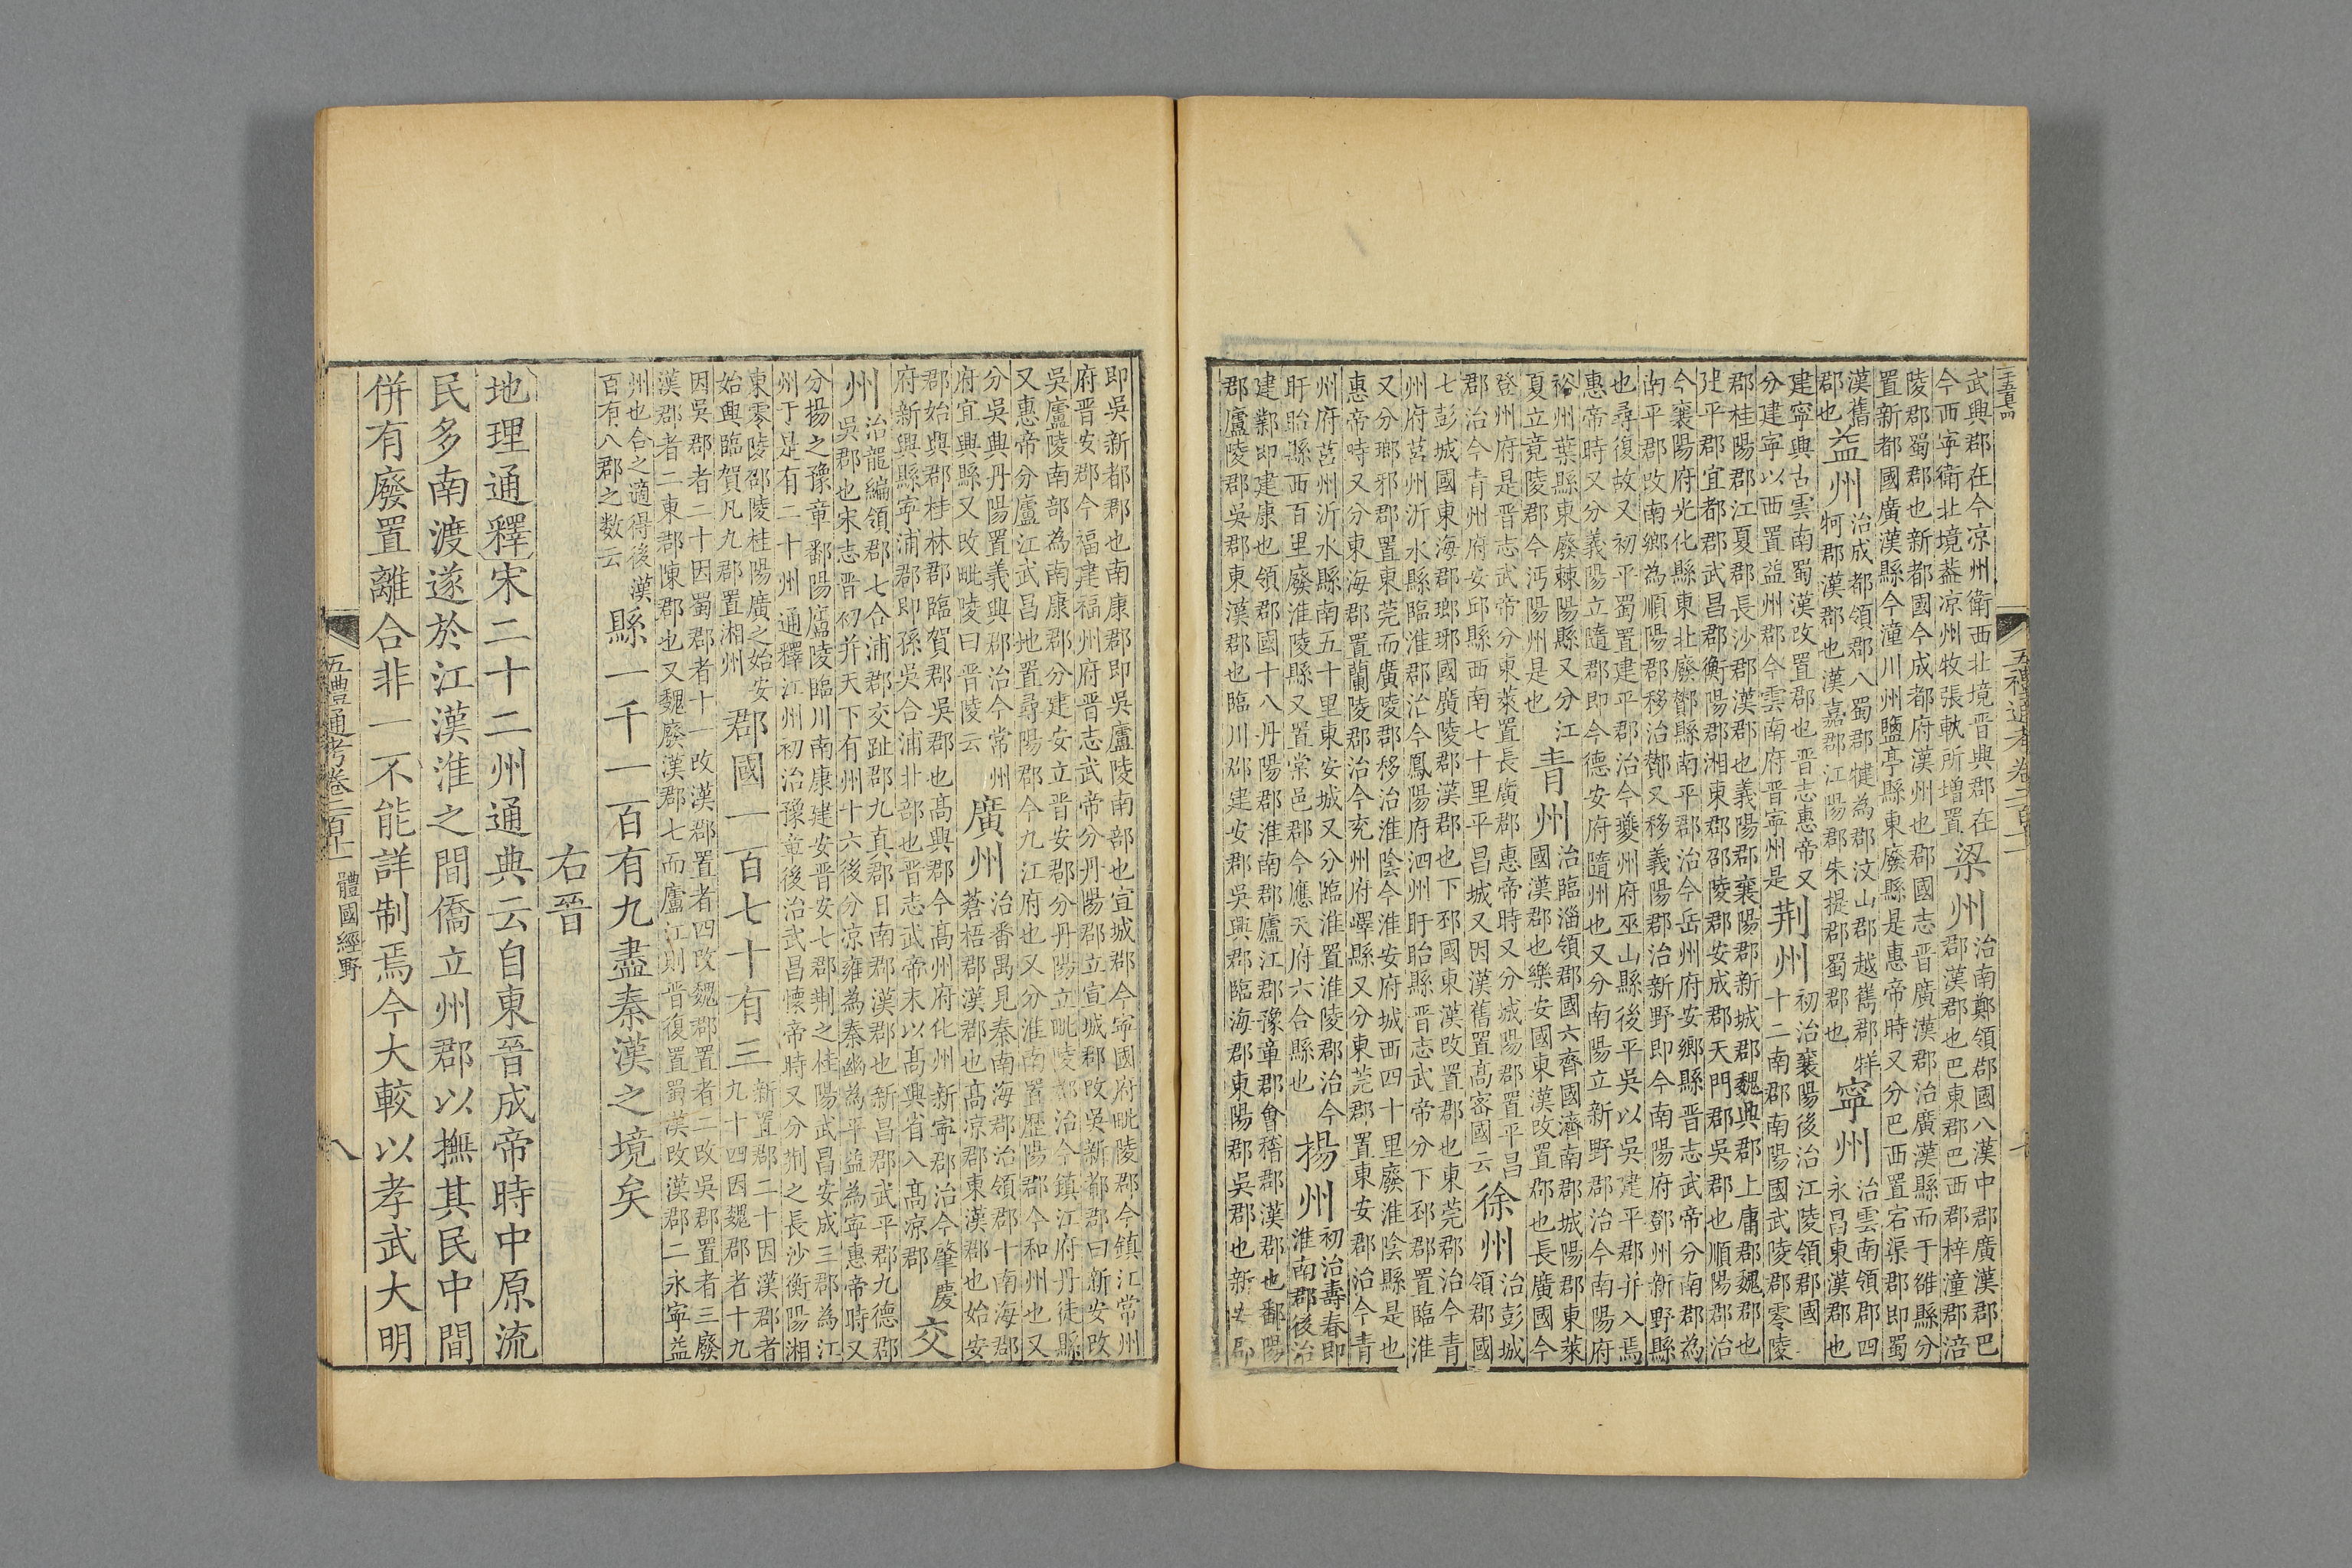 武興郡在今凉州衛西北境晋興郡在
今西寧衛北境葢凉州牧張軌所增置
梁州
治南鄭領郡國八漢中郡廣漢郡巴
郡漢郡也巴東郡巴西郡梓潼郡涪
陵郡蜀郡也新都國今成都府漢州也郡國志晋廣漢郡治廣漢縣而于雒縣分
置新都國廣漢縣今潼川州鹽亭縣東廢縣是惠帝時又分巴西置宕渠郡即蜀
漢舊
郡也
益州
治成都領郡八蜀郡犍為郡汶山郡越嶲郡牂
牁郡漢郡也漢嘉郡江陽郡朱提郡蜀郡也
寧州
治雲南領郡四
永昌東漢郡也
建寧興古雲南蜀漢改置郡也晋志惠帝又
分建寧以西置益州郡今雲南府晋寧州是
荆州
初治襄陽後治江陵領郡國
十二南郡南陽國武陵郡零陵
郡桂陽郡江夏郡長沙郡漢郡也義陽郡襄陽郡新城郡魏興郡上庸郡魏郡也
建平郡宜都郡武昌郡衡陽郡湘東郡邵陵郡安成郡天門郡吳郡也順陽郡治
今襄陽府光化縣東北廢酇縣南平郡治今岳州府安鄉縣晋志武帝分南郡為
南平郡改南鄉為順陽郡移治酇又移義陽郡治新野即今南陽府鄧州新野縣
也尋復故又初平蜀置建平郡治今夔州府巫山縣後平吳以吳建平郡并入焉
惠帝時又分義陽立隨郡即今德安府隨州也又分南陽立新野郡治今南陽府
裕州葉縣東廢棘陽縣又分江
夏立竟陵郡今沔陽州是也
青州
治臨淄領郡國六齊國濟南郡城陽郡東萊
國漢郡也樂安國東漢改置郡也長廣國今
登州府是晋志武帝分東萊置長廣郡惠帝時又分城陽郡置平昌
郡治今青州府安邱縣西南七十里平昌城又因漢舊置高密國云
徐州
治彭城
領郡國
七彭城國東海郡瑯琊國廣陵郡漢郡也下邳國東漢改置郡也東莞郡治今青
州府莒州沂水縣臨淮郡治今鳳陽府泗州盱眙縣晋志武帝分下邳郡置臨淮
又分瑯邪郡置東莞而廣陵郡移治淮陰今淮安府城西四十里廢淮陰縣是也
惠帝時又分東海郡置蘭陵郡治今兖州府嶧縣又分東莞郡置東安郡治今青
州府莒州沂水縣南五十里東安城又分臨淮置淮陵郡治今
盱眙縣西百里廢淮陵縣又置常邑郡今應天府六合縣也
揚州
初治壽春即
淮南郡後治
建鄴即建康也領郡國十八丹陽郡淮南郡廬江郡豫章郡會稽郡漢郡也鄱陽
郡廬陵郡吳郡東漢郡也臨川郡建安郡吳興郡臨海郡東陽郡吳郡也新安郡
即吳新都郡也南康郡即吳廬陵南部也宣城郡今寧國府毗陵郡今鎮江常州
府晋安郡今福建福州府晋志武帝分丹陽郡立宣城郡改吳新都郡曰新安改
吳廬陵南部為南康郡分建安立晋安郡分丹陽立毗陵郡治今鎮江府丹徒縣
又惠帝分廬江武昌地置尋陽郡今九江府也又分淮南置歷陽郡今和州也又
分吳興丹陽置義興郡治今常州
府宜興縣又改毗陵曰晋陵云
廣州
治番禺見秦南海郡治領郡十南海郡
蒼梧郡漢郡也高凉郡東漢郡也始安
郡始興郡桂林郡臨賀郡吳郡也高興郡今高州府化州新寧郡治今肇慶
府新興縣寧浦郡即孫吳合浦北部也晋志武帝末以高興省入高凉郡
交
州
治龍編領郡七合浦郡交趾郡九真郡日南郡漢郡也新昌郡武平郡九德郡
吳郡也宋志晋初并天下有州十六後分凉雍為秦幽為平益為寧惠帝時又
分揚之豫章鄱陽廬陵臨川南康建安晋安七郡荆之桂陽武昌安成三郡為江
州于是有二十州通釋江州初治豫章後治武昌懷帝時又分荆之長沙衡陽湘
東零陵邵陵桂陽廣之始安
始興臨賀凡九郡置湘州
郡國一百七十有三
新置郡二十因漢郡者
九十四因魏郡者十九
因吳郡者二十因蜀郡者十一改漢郡置者四改魏郡置者二改吳郡置者三廢
漢郡者二東郡陳郡也又魏廢漢郡七而廬江則晋復置蜀漢改漢郡二永寧益
州也合之適得後漢
百有八郡之数云
縣一千一百有九盡秦漢之境矣
右晉
地理通釋宋二十二州通典云自東晉成帝時中原流
民多南渡遂於江漢淮之間僑立州郡以撫其民中間
併有廢置離合非一不能詳制焉今大較以孝武大明
五禮通考卷二百十一 體國經野 八